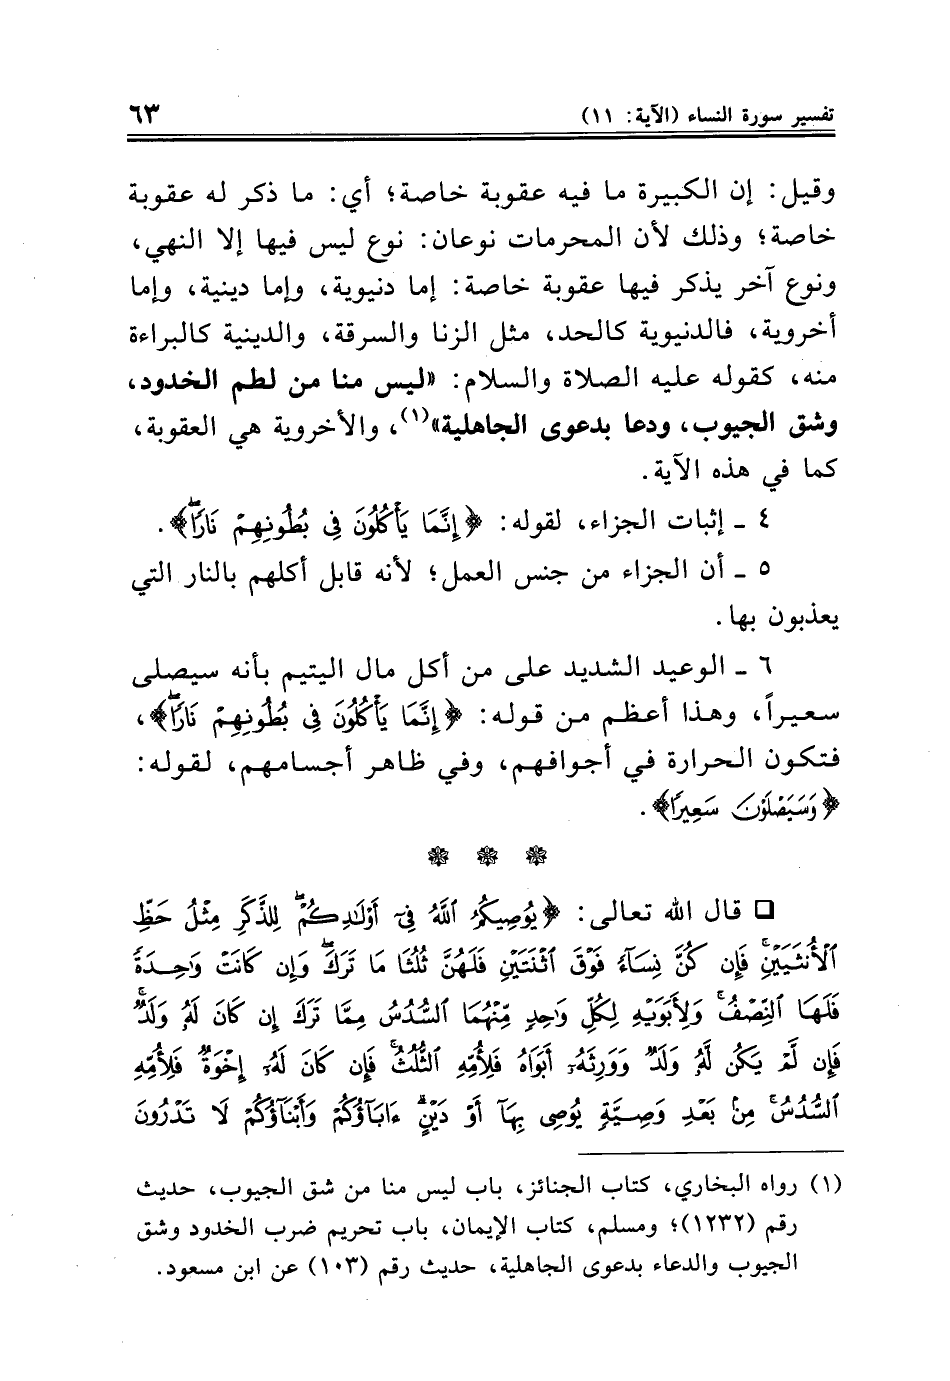 تفسير سورة النساء (الآية: ١١) ٦٣
وقيل: إن الكبيرة ما فيه عقوبة خاصة؛ أي: ما ذكر له عقوبة
خاصة؛ وذلك لأن المحرمات نوعان: نوع ليس فيها إلا النهي،
ونوع آخر يذكر فيها عقوبة خاصة: إما دنيوية، وإما دينية، وإما
أخروية، فالدنيوية كالحد، مثل الزنا والسرقة، والدينية كالبراءة
منه، كقوله عليه الصلاة والسلام: «ليس منا من لطم الخدود،
وشق الجيوب، ودعا بدعوى الجاهلية»(١)، والأخروية هي العقوبة،
كما في هذه الآية.
٤ ـ إثبات الجزاء، لقوله: ﴿إِنَّمَا يَأْكُلُونَ فِى بُطُونِهِمْ نَارًاۖ﴾.
٥ ـ أن الجزاء من جنس العمل؛ لأنه قابل أكلهم بالنار التي
يعذبون بها.
٦ ـ الوعيد الشديد على من أكل مال اليتيم بأنه سيصلى
سعيراً، وهذا أعظم من قوله: ﴿إِنَّمَا يَأْكُلُونَ فِى بُطُونِهِمْ نَارًاۖ﴾،
فتكون الحرارة في أجوافهم، وفي ظاهر أجسامهم، لقوله:
﴿وَسَيَصْلَوْنَ سَعِيرًا﴾.
❁ ❁ ❁
❑ قال الله تعالى: ﴿يُوصِيكُمُ ٱللَّهُ فِىٓ أَوْلَـٰدِكُمْۖ لِلذَّكَرِ مِثْلُ حَظِّ
ٱلْأُنثَيَيْنِۚ فَإِن كُنَّ نِسَآءً فَوْقَ ٱثْنَتَيْنِ فَلَهُنَّ ثُلُثَا مَا تَرَكَۖ وَإِن كَانَتْ وَٰحِدَةً
فَلَهَا ٱلنِّصْفُۚ وَلِأَبَوَيْهِ لِكُلِّ وَٰحِدٍ مِّنْهُمَا ٱلسُّدُسُ مِمَّا تَرَكَ إِن كَانَ لَهُۥ وَلَدٌۚ
فَإِن لَّمْ يَكُن لَّهُۥ وَلَدٌ وَوَرِثَهُۥٓ أَبَوَاهُ فَلِأُمِّهِ ٱلثُّلُثُۚ فَإِن كَانَ لَهُۥٓ إِخْوَةٌ فَلِأُمِّهِ
ٱلسُّدُسُۚ مِنۢ بَعْدِ وَصِيَّةٍ يُوصِى بِهَآ أَوْ دَيْنٍۗ ءَابَآؤُكُمْ وَأَبْنَآؤُكُمْ لَا تَدْرُونَ
(١) رواه البخاري، كتاب الجنائز، باب ليس منا من شق الجيوب، حديث
رقم (١٢٣٢)؛ ومسلم، كتاب الإيمان، باب تحريم ضرب الخدود وشق
الجيوب والدعاء بدعوى الجاهلية، حديث رقم (١٠٣) عن ابن مسعود.